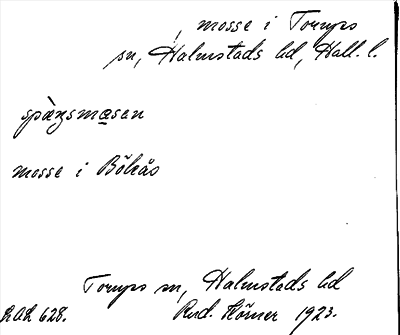 , mosse i Torups
sn, Halmstads hd, Hall. l.
spàŋsmasen
mosse i Bökås
Torups sn, Halmstads hd
LAL 628. Rud. Körner 1923.